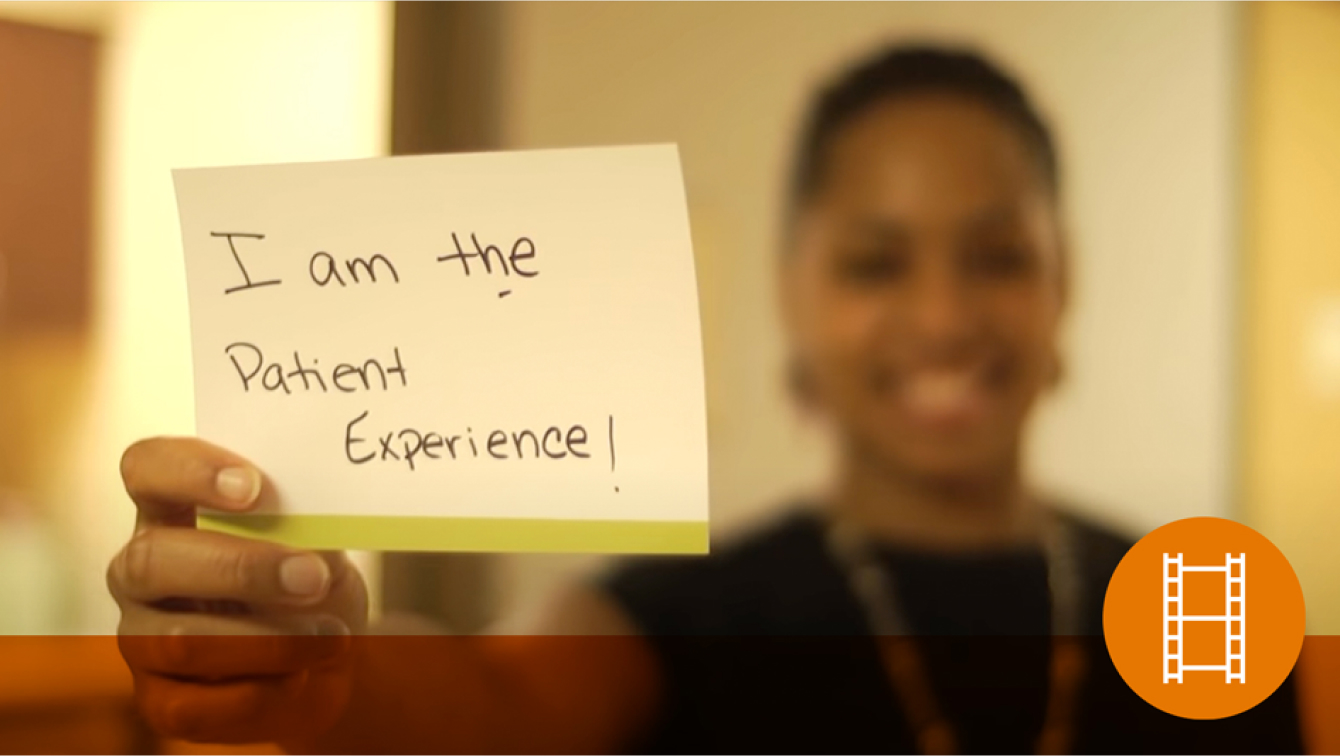 I am the
Patient
Experience!